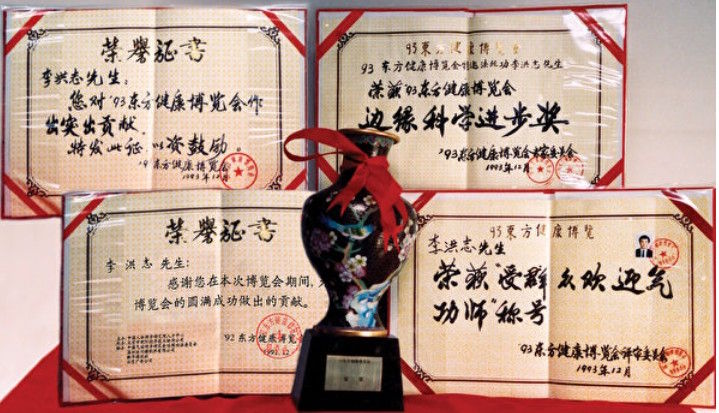 荣誉证书
李洪志先生：
您对'93东方健康博览会作
出突出贡献。
特发此证，以资鼓励。
'93东方健康博览会
1993年12月
93東方健康博览会
93东方健康博览会
李洪志先生
荣获'93东方健康博览会
边缘科学进步奖
'93东方健康博览会专家委员会
1993年12月
荣誉证书
李洪志先生：
感谢您在本次博览会期间，
博览会的圆满成功做出的贡献。
'92东方健康博览
93東方健康博览
李洪志先生
荣获"受群众欢迎气
功师"称号
'93东方健康博览会评审委员会
1993年12月